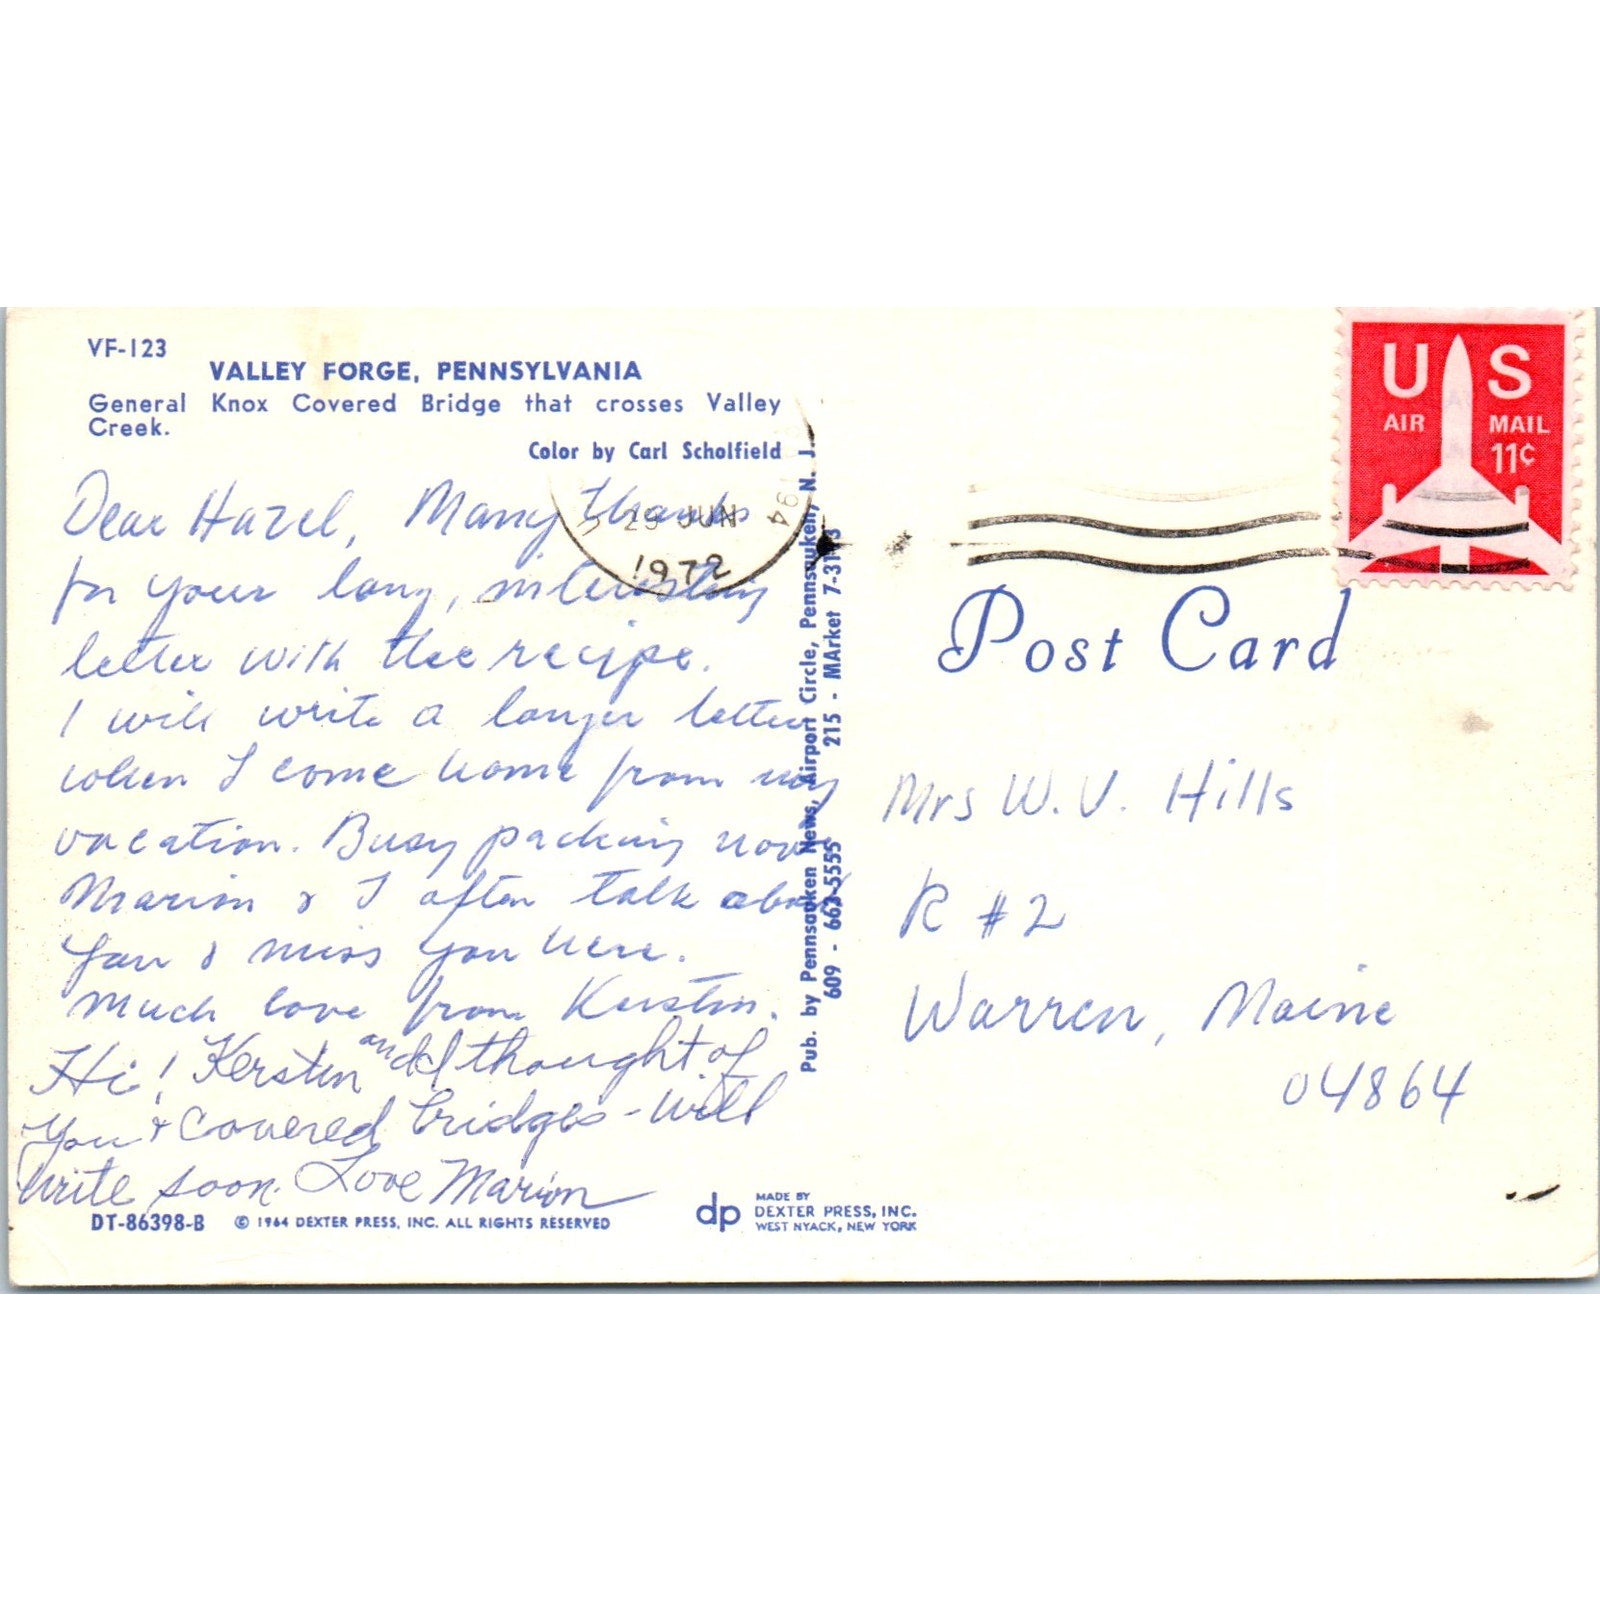 VF-123
VALLEY FORGE, PENNSYLVANIA
General Knox Covered Bridge that crosses Valley
Creek.
Color by Carl Scholfield
Dear Hazel, Many thanks
for your long, interesting
letter with the recipe.
I will write a longer letter
when I come home from my
vacation. Busy packing now
Marion & I often talk about
you & miss you here.
Much love from Kerstin.
Hi! Kerstin and I thought of
you & covered bridges - will
write soon. Love Marion
DT-86398-B © 1964 DEXTER PRESS, INC. ALL RIGHTS RESERVED
dp
MADE BY
DEXTER PRESS, INC.
WEST NYACK, NEW YORK
Pub. by Pennsauken News, Airport Circle, Pennsauken, N. J.
609 - 663-5555 215 - MArket 7-3193
194
29 JUN
1972
US
AIR MAIL
11¢
Post Card
Mrs W. V. Hills
R #2
Warren, Maine
04864